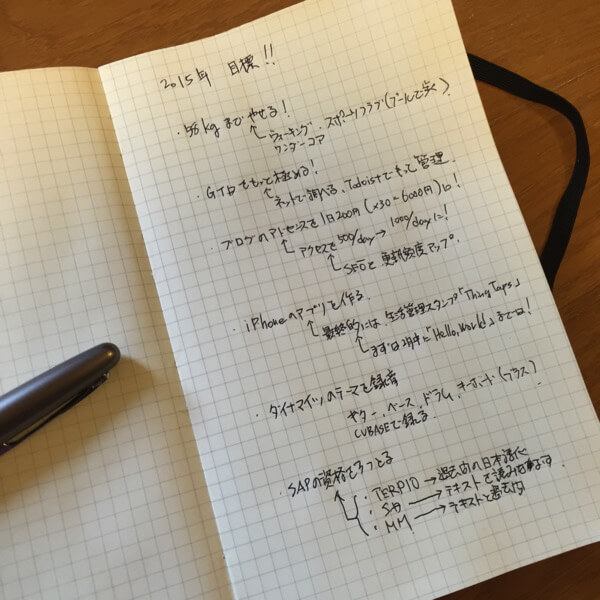 2015年 目標!!
・58kgまでやせる!
ウォーキング、スポーツクラブ(プールで歩く)
ワンダーコア
・GTDをもっと極める!
ネットで調べる、Todoistでもって管理
・ブログのアドセンスを1日200円(×30=6000円)に!
アクセスを500/day→1000/dayに!
SEOと更新頻度アップ。
・iPhoneのアプリを作る。
最終的には、生活管理スタンプ「ThingTaps」
まずは2月中に「Hello, World!」までは!
・ダイナマイツのテーマを録音
ギター、ベース、ドラム、キーボード(ブラス)
CUBASEで録る。
・SAPの資格を3つとる
・TERP10→過去問の日本語化
・SD→テキストを読み
・MM→テキストと過去問